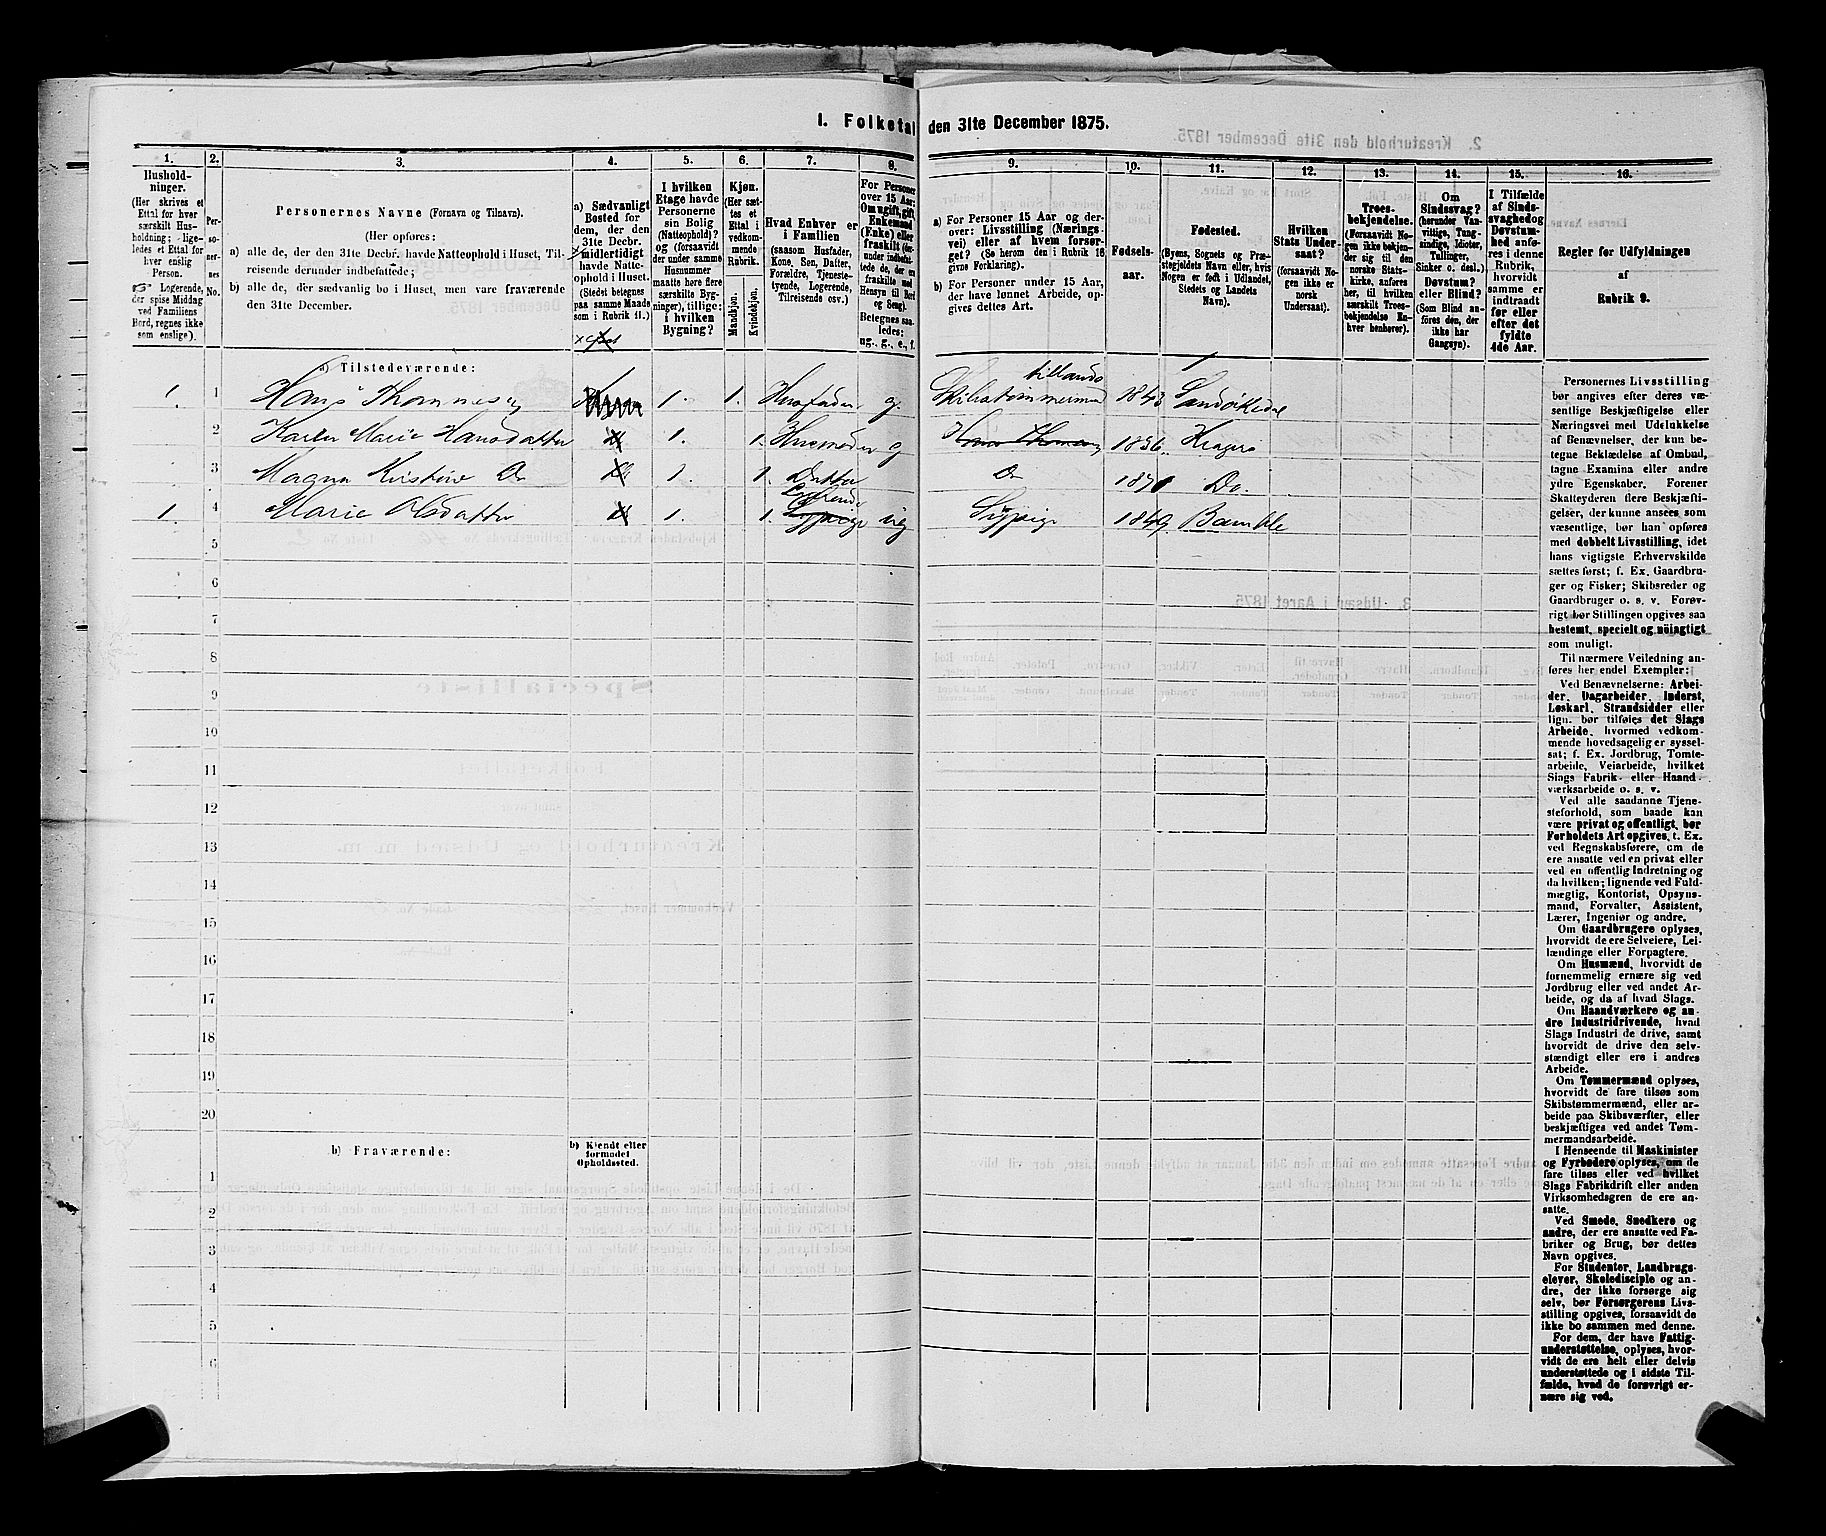 I. Folketal den 31te December 1875.
1. 2. 3. 4. 5. 6. 7. 8. 9. 10. 11. 12. 13. 14. 15. 16.
Hushold-
ninger.
(Her skrives et
Ettal for hver
særskilt Hus-
holdning; lige-
ledes et Ettal for
hver enslig
Person.
Logerende,
der spise Middag
ved Familiens
Bord, regnes ikke
som enslige).
Per-
so-
ner-
nes
No.
Personernes Navne (Fornavn og Tilnavn).
(Her opføres:
a) alle de, der den 31te Decbr. havde Natteophold i Huset, Til-
reisende derunder indbefattede;
b) alle de, der sædvanlig bo i Huset, men vare fraværende
den 31te December.
a) Sædvanligt
Bosted for
dem, der den
31te Decbr.
midlertidigt
havde Natte-
ophold i Huset.
(Stedet betegnes
paa samme Maade
som i Rubrik 11.)
I hvilken
Etage havde
Personerne
sin Bolig
(Natteophold)?
og (forsaavidt
der under samme
Husnummer
maatte høre flere
særskilte Byg-
ninger), tillige:
i hvilken
Bygning?
Kjøn.
(Her sæt-
tes et
Ettal i
vedkom-
mende
Rubrik.
Mandkjøn.
Kvindekjøn.
Hvad Enhver er
i Familien
(saasom Husfader,
Kone, Søn, Datter,
Forældre, Tjeneste-
tyende, Logerende,
Tilreisende osv.)
For Personer
over 15 Aar:
Om ugift, gift,
Enkemand
(Enke) eller
fraskilt (der-
under indbefat-
tede de, der ere
fraskilte med
Hensyn til Bord
og Seng).
Betegnes saa-
ledes:
ug., g., e., f.
a) For Personer 15 Aar og der-
over: Livsstilling (Nærings-
vei) eller af hvem forsør-
get? (Se herom den i Rubrik 16
givne Forklaring).
b) For Personer under 15 Aar,
der have lønnet Arbeide, op-
gives dettes Art.
Fødsels-
aar.
Fødested.
(Byens, Sognets og Præ-
stegjeldets Navn eller, hvis
Nogen er født i Udlandet,
Stedets og Landets
Navn).
Hvilken
Stats Under-
saat?
(forsaavidt No-
gen ikke er
norsk
Undersaat).
Troes-
bekjendelse.
(Forsaavidt No-
gen ikke bekjen-
der sig til den
norske Stats-
kirke, anføres
her, til hvilken
særskilt Troes-
bekjendelse En-
hver henhører).
Om
Sindssvag?
(herunder Van-
vittige, Tung-
sindige, Idioter,
Tullinger,
Sinker o. desl.)
Døvstum?
eller Blind?
(Som Blind an-
føres den, der
ikke har
Gangsyn).
I Tilfælde
af Sinds-
svaghed og
Døvstum-
hed anfø-
res i denne
Rubrik,
hvorvidt
samme er
indtraadt
før eller
efter det
fyldte
4de Aar.
Regler for Udfyldningen
af
Rubrik 9.
a) Tilstedeværende:
1. 1 Hans Thommesen 1. 1. Husfader g. tillands Skibstømmermand 1843 Sandøkedal
2 Karen Marie Hansdatter 1. 1. Husmoder g 1836 Kragerø
3 Magna Kirstine Do 1. 1. Datter Do Do.
1. 4 Marie Olsdatter 1. 1. ug Sypige 1849 Bamble
5
6
7
8
9
10
11
12
13
14
15
16
17
18
19
20
b) Fraværende:
b) Kjendt eller
formodet
Opholdssted.
1
2
3
4
5
6
Personernes Livsstilling
bør angives efter deres væ-
sentlige Beskjæftigelse eller
Næringsvei med Udelukkelse
af Benævnelser, der kun be-
tegne Beklædelse af Ombud,
tagne Examina eller andre
ydre Egenskaber. Forener
Skatteyderen flere Beskjæfti-
gelser, der kunne ansees som
væsentlige, bør han opføres
med dobbelt Livsstilling, idet
hans vigtigste Erhvervskilde
sættes først; f. Ex. Gaardbru-
ger og Fisker; Skibsreder og
Gaardbruger o. s. v. Forøv-
rigt bør Stillingen opgives saa
bestemt, specielt og nøiagtigt
som muligt.
Til nærmere Veiledning an-
føres her endel Exempler:
Ved Benævnelserne: Arbei-
der, Dagarbeider, Inderst,
Løskarl, Strandsidder eller
lign. bør tilføies det Slags
Arbeide, hvormed vedkom-
mende hovedsagelig er syssel-
sat; f. Ex. Jordbrug, Tomte-
arbeide, Veiarbeide, hvilket
Slags Fabrik- eller Haand-
værksarbeide o. s. v.
Ved alle saadanne Tjene-
steforhold, som baade kan
være privat og offentligt, bør
Forholdets Art opgives, t. Ex.
ved Regnskabsførere, om de
ere ansatte ved en privat eller
ved en offentlig Indretning og
da hvilken; lignende ved Fuld-
mægtig, Kontorist, Opsyns-
mand, Forvalter, Assistent,
Lærer, Ingeniør og andre.
Om Gaardbrugere oplyses,
hvorvidt de ere Selveiere, Lei-
lændinge eller Forpagtere.
Om Husmænd, hvorvidt de
fornemmelig ernære sig ved
Jordbrug eller ved andet Ar-
beide, og da af hvad Slags.
Om Haandværkere og an-
dre Industridrivende, hvad
Slags Industri de drive, samt
hvorvidt de drive den selv-
stændigt eller ere i andres
Arbeide.
Om Tømmermænd oplyses,
hvorvidt de fare tilsøs som
Skibstømmermænd, eller ar-
beide paa Skibsværfter, eller
beskjæftiges ved andet Tøm-
mermandsarbeide.
I Henseende til Maskinister
og Fyrbødere oplyses, om de
fare tilsøs eller ved hvilket
Slags Fabrikdrift eller anden
Virksomhedsgren de ere an-
satte.
Ved Smede, Snedkere og
andre, der ere ansatte ved Fa-
briker og Brug, bør dettes
Navn opgives.
For Studenter, Landbrugs-
elever, Skoledisciple og an-
dre, der ikke forsørge sig
selv, bør Forsørgerens Livs-
stilling opgives, forsaavidt de
ikke bo sammen med denne.
For dem, der have Fattig-
understøttelse, oplyses, hvor-
vidt de ere helt eller delvis
understøttede og i sidste Til-
fælde, hvad de forøvrigt er-
nære sig ved.